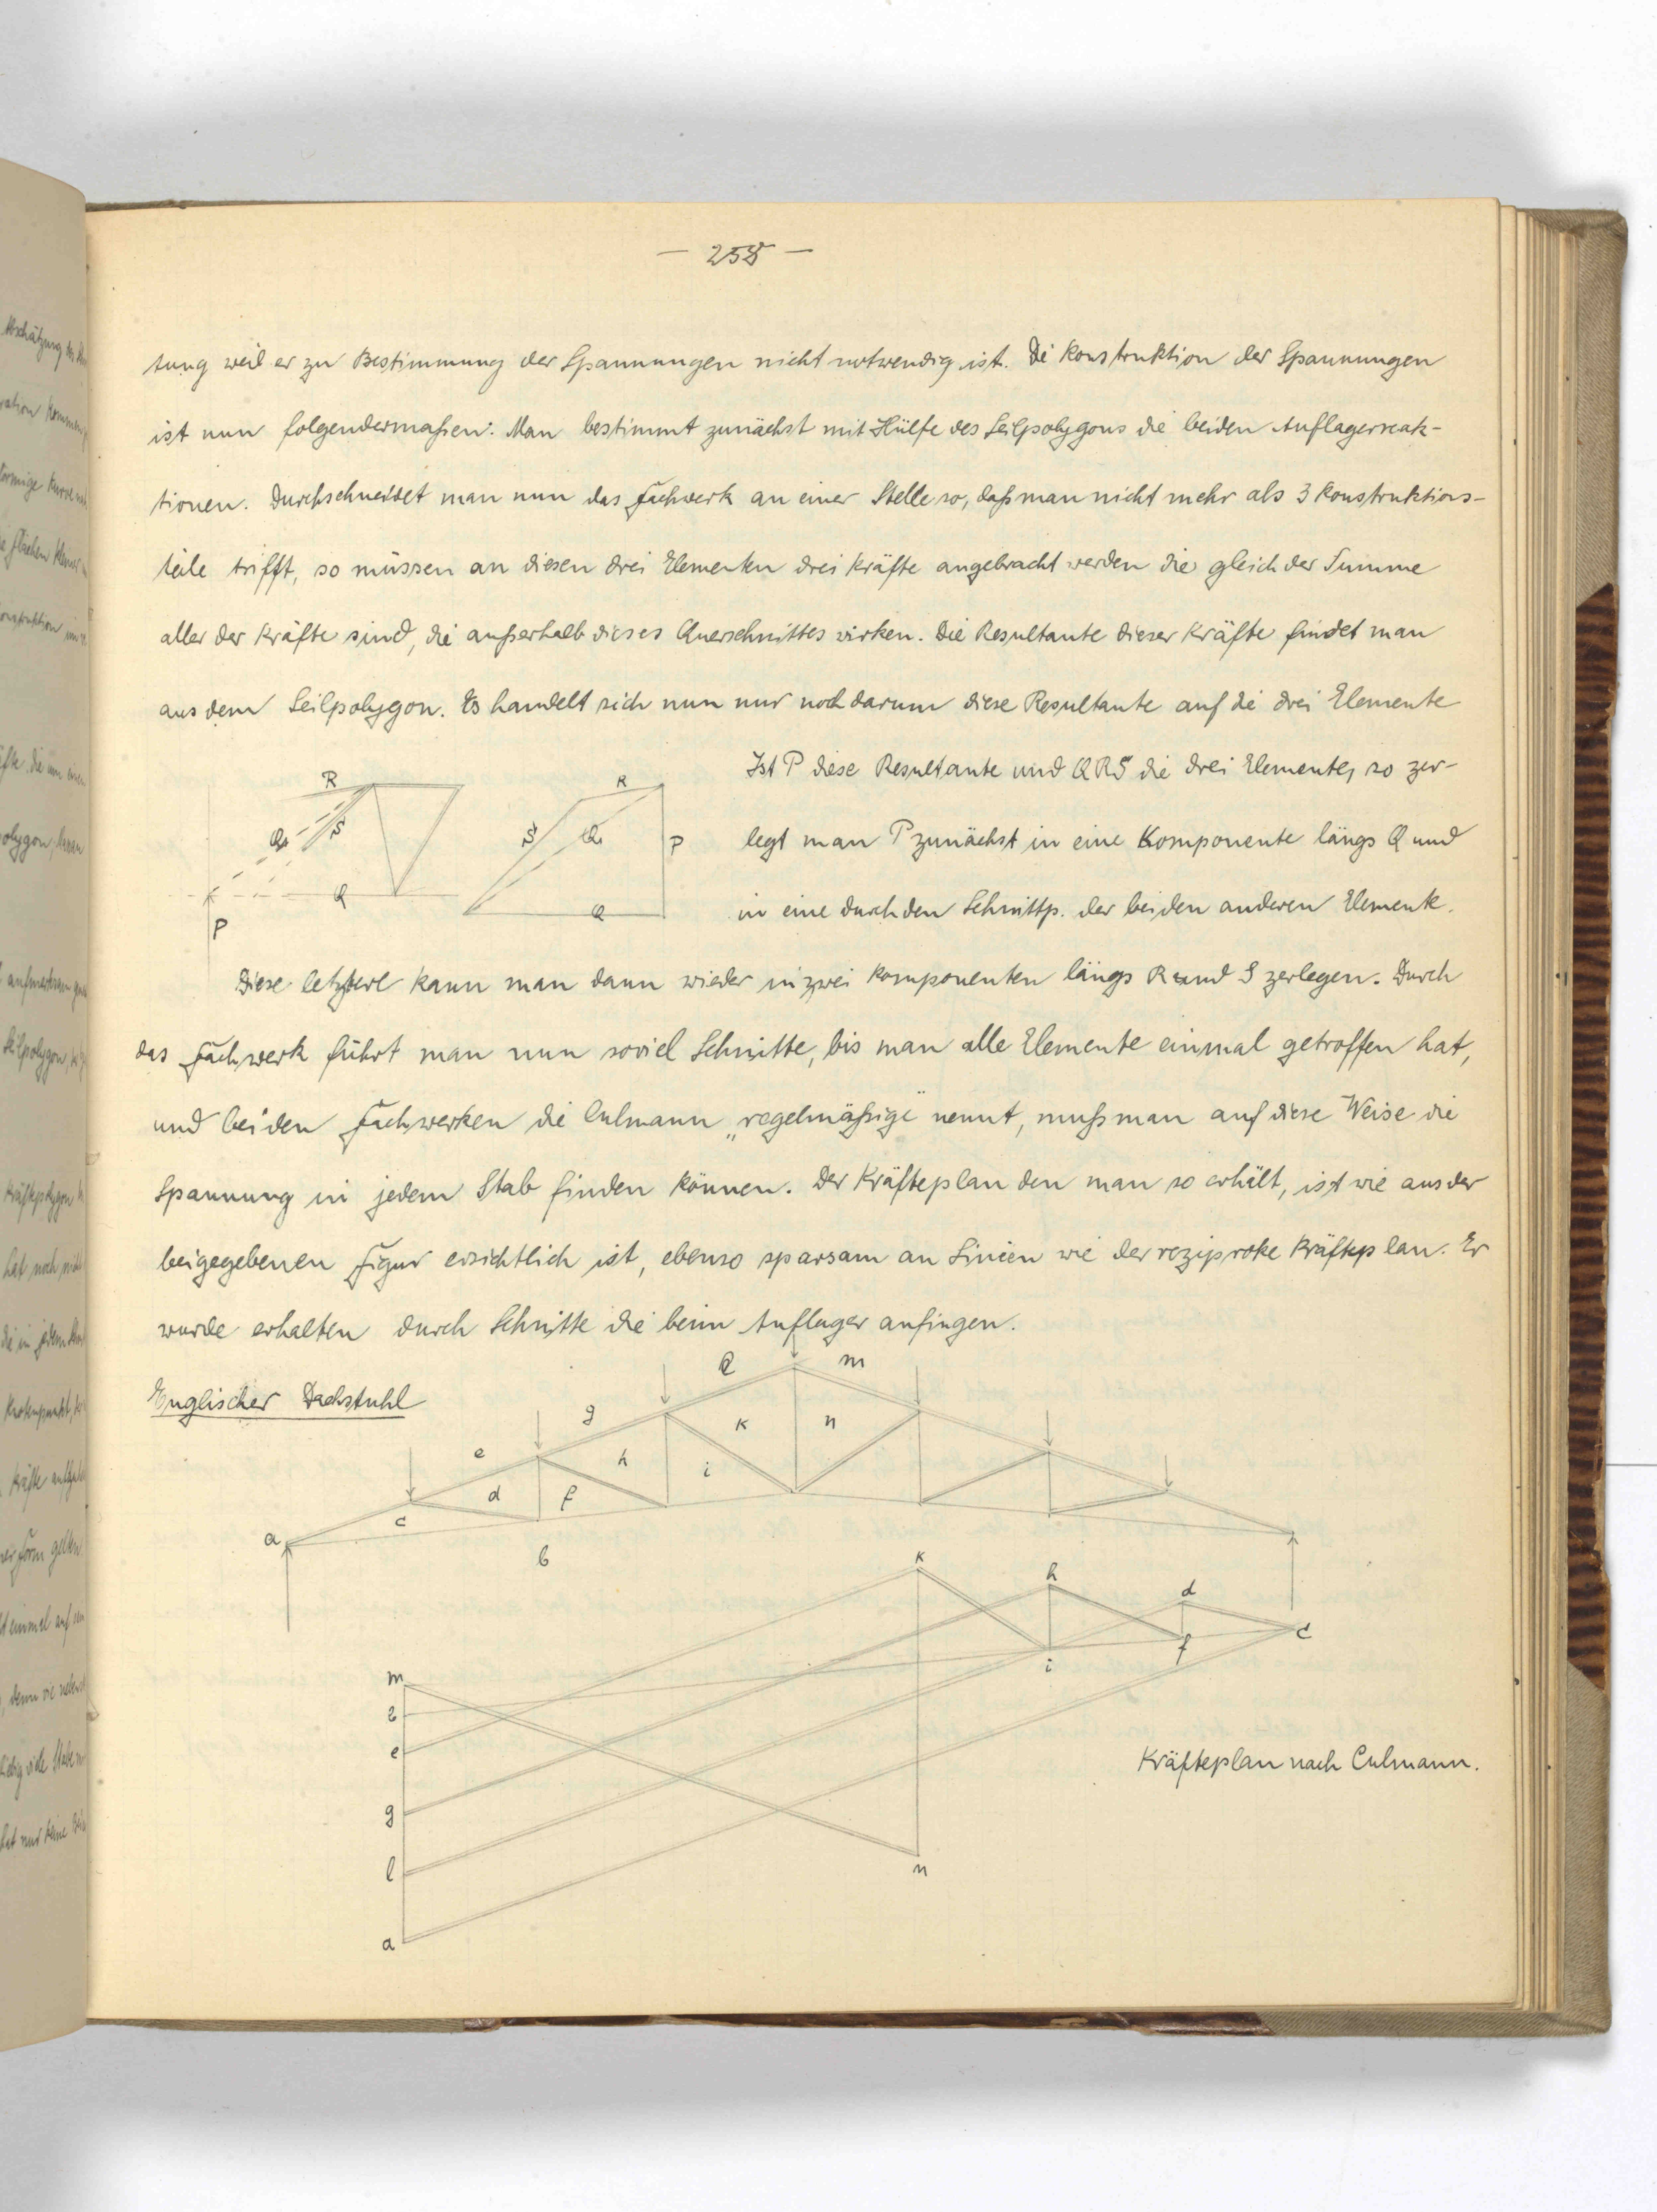 — 258 —
tung weil er zur Bestimmung der Spannungen nicht notwendig ist. Di Konstruktion der Spannungen
ist nun folgendermaßen: Man bestimmt zunächst mit Hülfe des Seilpolygons die beiden Auflagerreak-
tionen. Durchschneidet man nun das Fachwerk an einer Stelle so, daß man nicht mehr als 3 Konstruktions-
teile trifft, so müssen an diesen drei Elementen drei Kräfte angebracht werden die gleich der Summe
aller der Kräfte sind, die außerhalb dieses Querschnittes wirken. Die Resultante dieser Kräfte findet man
aus dem Seilpolygon. Es handelt sich nun nur noch darum diese Resultante auf die drei Elemente
Ist P diese Resultante und Q R S die drei Elemente, so zer-
legt man P zunächst in eine Komponente längs Q und
in eine durch den Schnittp. der beiden anderen Elemente.
R
S
Q₁
Q
P
R
S
Q₁
P
Q
Diese letztere kann man dann wieder in zwei Komponenten längs R und S zerlegen. Durch
das Fachwerk führt man nun soviel Schnitte, bis man alle Elemente einmal getroffen hat,
und bei den Fachwerken die Culmann „regelmäßige" nennt, muß man auf diese Weise die
Spannung in jedem Stab finden können. Der Kräfteplan den man so erhält, ist wie aus der
beigegebenen Figur ersichtlich ist, ebenso sparsam an Linien wie der reziproke Kräfteplan. Er
wurde erhalten durch Schnitte die beim Auflager anfingen.
Englischer Dachstuhl
l m
g k n
e h i
d f
c
a
b
k
h
d
c
f
i
m
e
g
l
a
n
Kräfteplan nach Culmann.